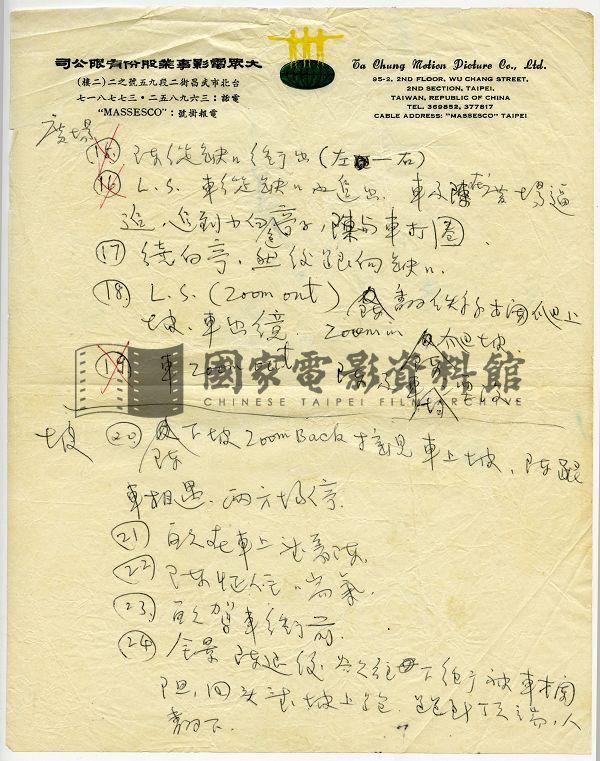 大眾電影事業股份有限公司
台北市武昌街二段九五號之二(二樓)
電話：三六九八五二・三七七八一七
電報掛號："MASSESCO"
Ta Chung Motion Picture Co., Ltd.
95-2, 2ND FLOOR, WU CHANG STREET,
2ND SECTION, TAIPEI,
TAIWAN, REPUBLIC OF CHINA
TEL. 369852, 377817
CABLE ADDRESS: "MASSESCO" TAIPEI
廣場
15 陳從缺口衝出(左—右)
16 L.S. 車從缺口內追出 車及陳 廣場逼
追，追到小白亭子，陳与車打圈
17 繞白亭，然後跟向缺口
18. L.S. (Zoom out) 翻 爬上
坡，車出鏡. Zoom in 爬坡
19 車 Zoom out 陳
國家電影資料館
CHINESE TAIPEI FILM ARCHIVE
坡 20. 陳下坡 Zoom Back 車上坡，陳跟
車相遇，兩方均停.
21 在車上 陳.
22 陳 喘氣.
23. 駕車衝前.
24 全景 陳退後，下 被車攔
阻，回头 坡上跑 跑到頂端，人
翻下.